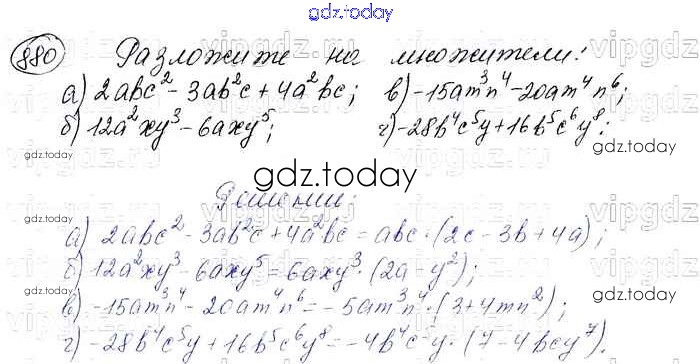 gdz.today
880 Разложите на множители:
а) 2abc² - 3ab²c + 4a²bc; в) -15am³n⁴ - 20am⁴n⁶;
б) 12a²xy³ - 6axy⁵; г) -28b⁴c⁵y + 16b⁵c⁶y⁸.
gdz.today
gdz.today
gdz.today
Решение:
а) 2abc² - 3ab²c + 4a²bc = abc·(2c - 3b + 4a);
б) 12a²xy³ - 6axy⁵ = 6axy³·(2a - y²);
в) -15am³n⁴ - 20am⁴n⁶ = -5am³n⁴·(3 + 4mn²);
г) -28b⁴c⁵y + 16b⁵c⁶y⁸ = -4b⁴c⁵y·(7 - 4bcy⁷).